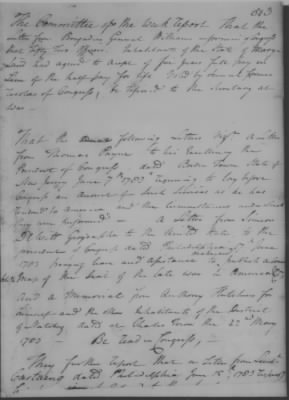 803
The Committee of the Week report That the
letter from Brigadier General Williams informing Congress
that fifty two Officers Inhabitants of the State of Mary=
land had agreed to accept of five years full pay in
lieu of the half pay for life Voted by several former
resolves of Congress, be referred to the Secretary at
war —
That the following letters Vizt. A letter
from Thomas Payne to his Excellency the
President of Congress dated Borden Town State of
New Jersey June 7th 1783 requesting to lay before
Congress an account of such Services as he has
rendered to America and the Circumstances under which
they were performed — A letter from Simeon
DeWitt Geographer to the United States to the
president of Congress dated Philadelphia June
1783 praying leave and assistance to publish
Map of the Seat of the late War in America
And a Memorial from Anthony Hutchins for
himself and the Inhabitants of the District
of Natchez, dated at Charles Town the 22nd May
1783 — Be read in Congress, —
They further report that a letter from
dated Philadelphia June 15th 1783